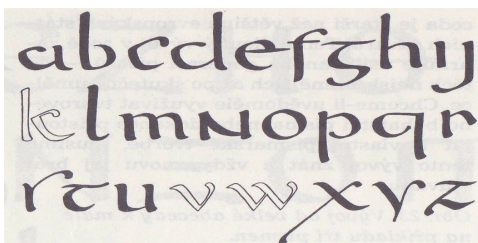 abcdefghij
klmNopqr
stuvwxyz